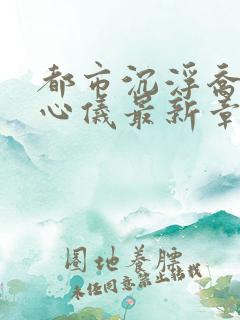 都市沉浮乔
心仪最新章
圈地养膘
未经同意禁止转载